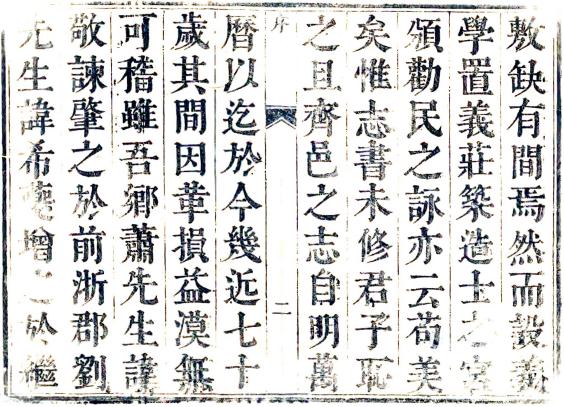 敷缺有間焉然而設義
學置義莊築造士之宮
頒勸民之詠亦云苟美
矣惟志書未修君子恥
之且齊邑之志自明萬
序 二
曆以迄於今幾近七十
歲其間因革損益漠無
可稽雖吾鄉蕭先生諱
敬諫肇之於前浙郡劉
先生諱希增之於繼